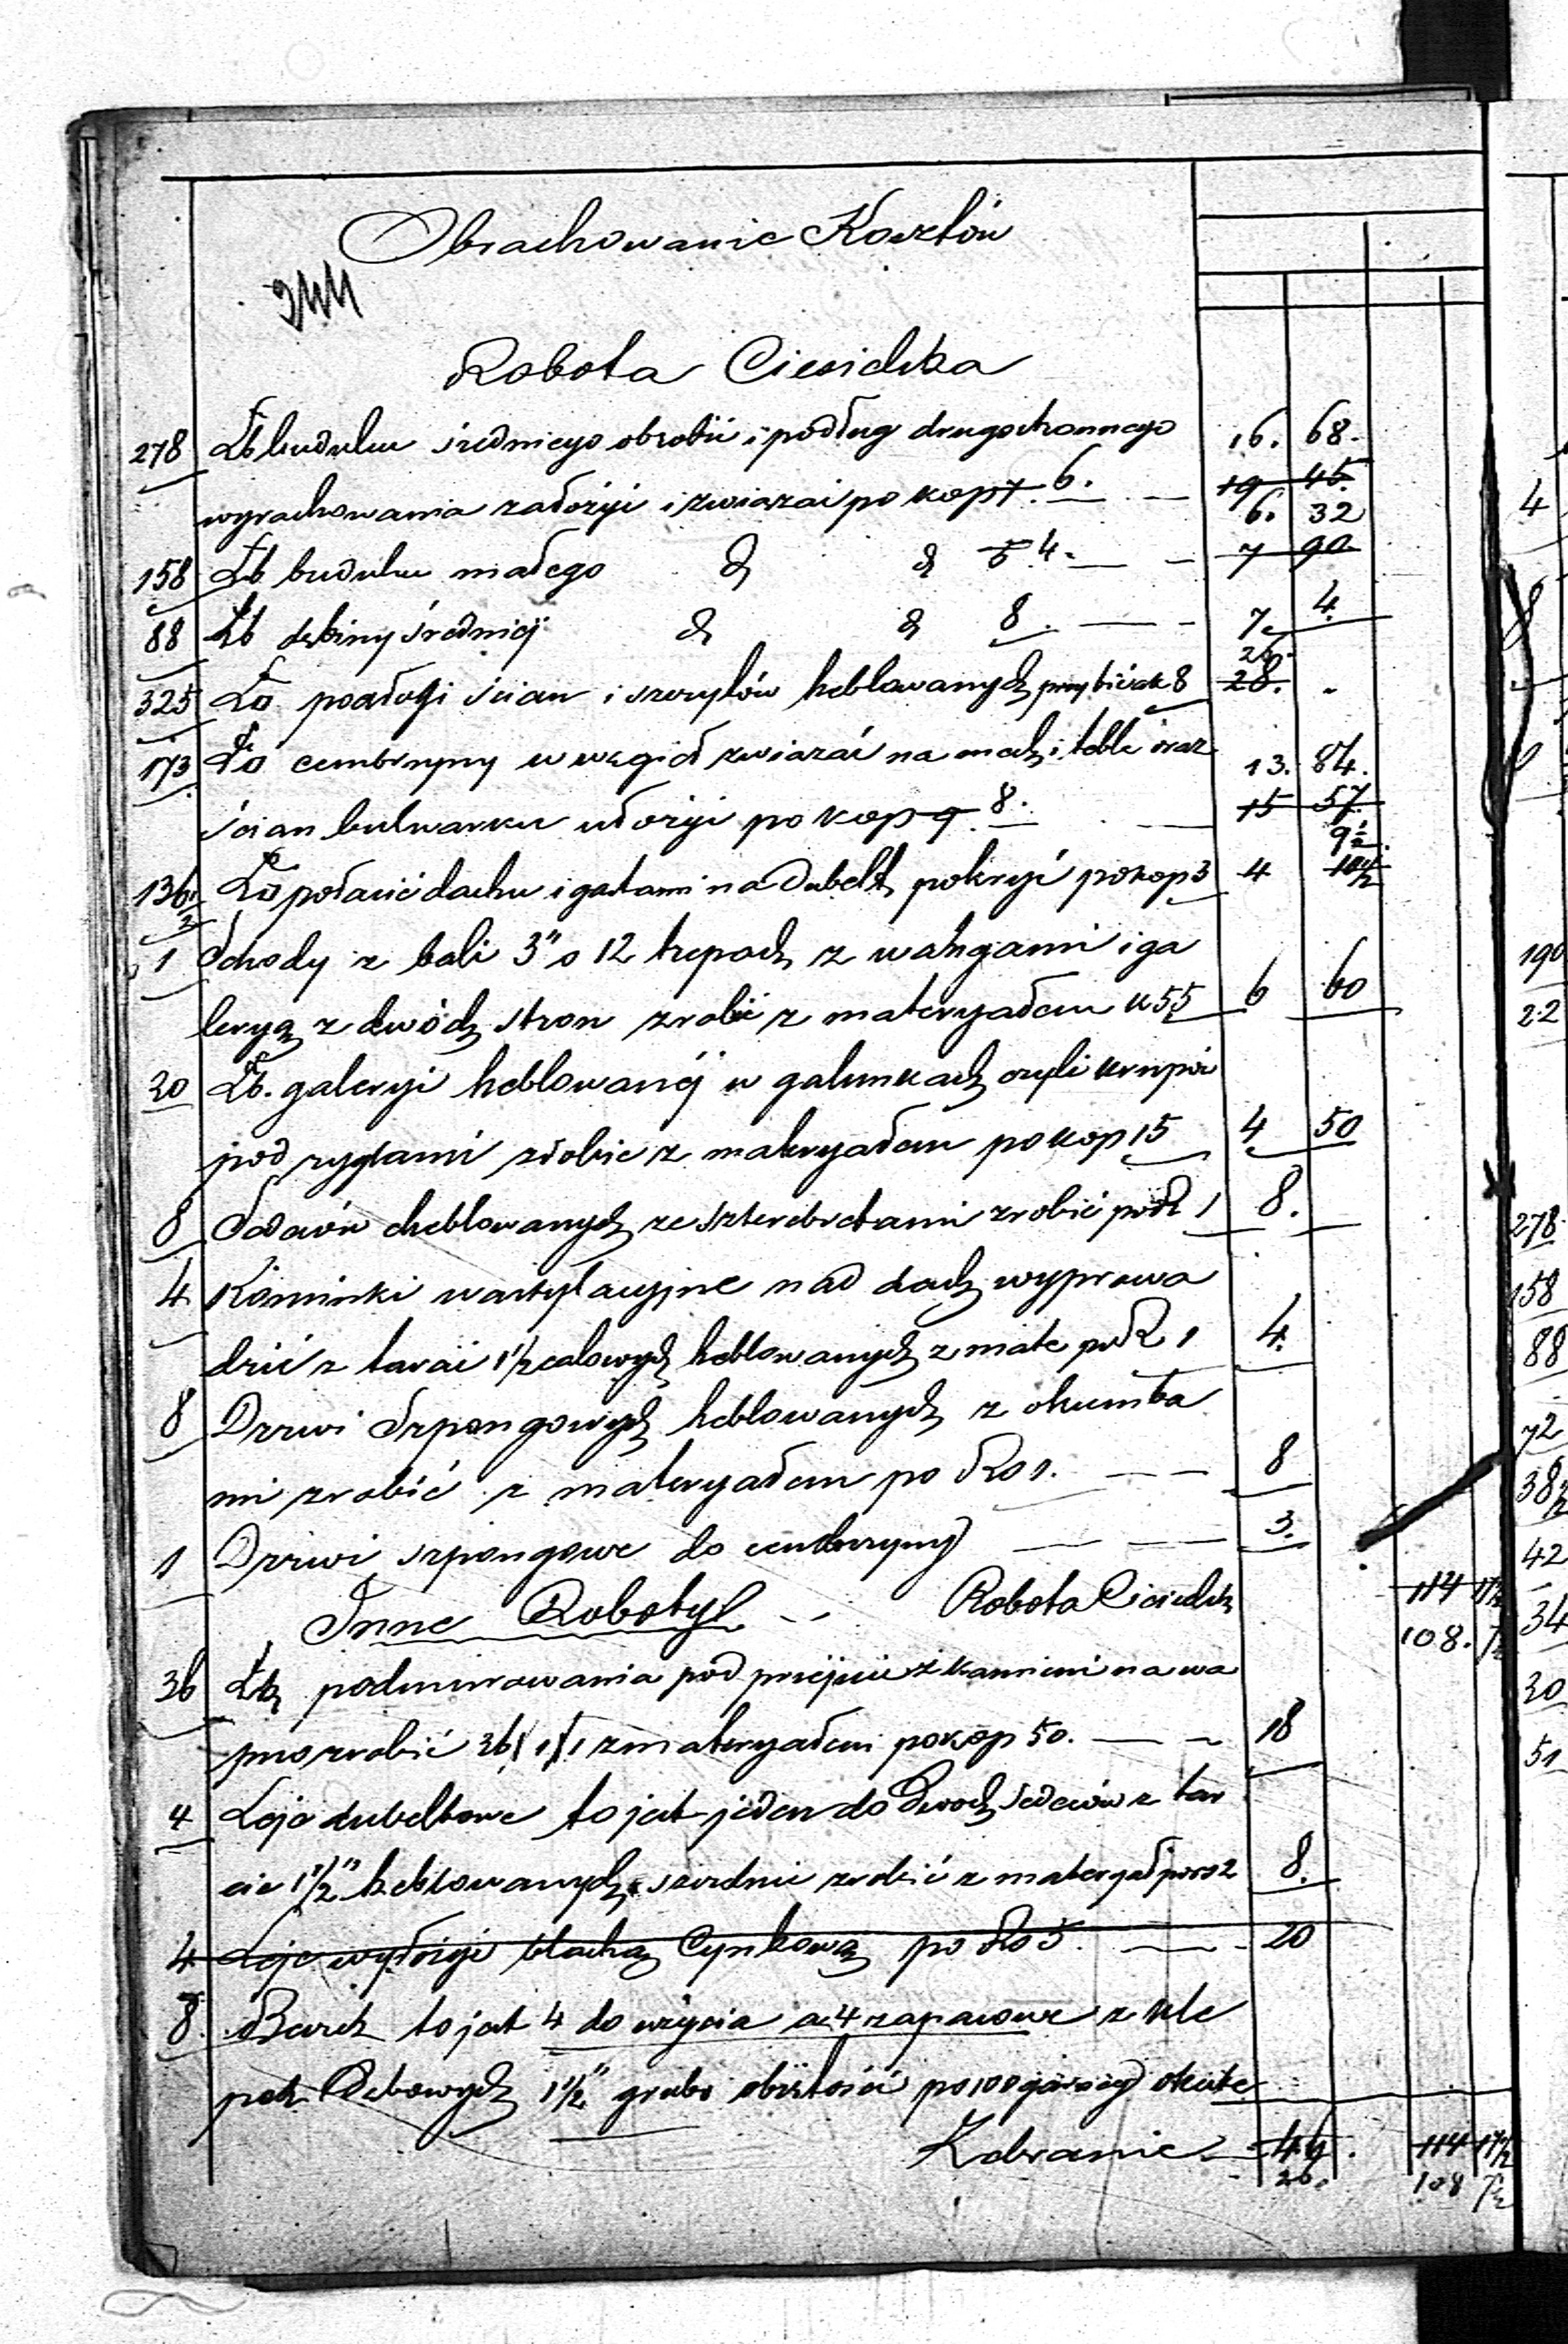 Obrachowanie Kosztów
Robota Ciesielska
278 Łb budulcu średniego obrobić i podług drugostronnego 16. 68.
wyrachowania założyć i związać po kop 7. 6. — 19 46.
158 Łb budulcu małego d d 5 4. — 6. 32
7 90
88 Łb dębiny średniej d d 8. — 7. 4.
325 Ło podłogi ścian i szczytów heblowanych przybić à k 8 26. 28.
173 Ło cembryny w węgieł związać na mech i teble oraz 13. 84.
ścian bulwarku ułożyć po kop 9 8. — 15 57
136 1/2 Ło połacić dachu i gatami na dubelt pokryć po kop 3 4 9 1/2 10 1/2
1 Schody z bali 3" o 12 trepach z wangami i ga
leryą z dwóch stron zrobić z materyałem k 55 6 60
30 Łb. galeryi heblowanéj w gatunkach czyli
pod ryglami zrobić z materyałem po kop 15 4 50
8 Sedesów cheblowanych ze szterebretami zrobić po R 1 8.
4 Kominki wentylacyjne nad dach wyprowa
dzić z tarcic 1 1/2 calowych heblowanych z mate po R 1 4.
8 Drzwi Szpongowych heblowanych z okumita
mi zrobić z materyałem po Ro 1. — 8
1 Drzwi szpongowe do cembryny — 3.
Inne Roboty — Robota Ciesielsk 114 17 1/2
108. 7 1/2
36 Łb podmurowania pod przyjście z kamieni na wa
pno zrobić 36/1/1 z materyałem po kop 50. — 18
4 Loje dubeltowe to jest jeden do dwóch sedesów z tar
cic 1 1/2" heblowanych szczelnie zrobić z materyał po ro 2 8.
4 Loje wyłożyć blachą Cynkową po Ro 5. — 20
8. Beczek to jest 4 do użycia a 4 zapasowe z kle
pek Dębowych 1 1/2" grube objętości po 100 garncy okute
Zebranie 46. 114 17 1/2
26. 108 7 1/2
4
8
190
22
278
158
88
72
38 1/2
42
34
30
51